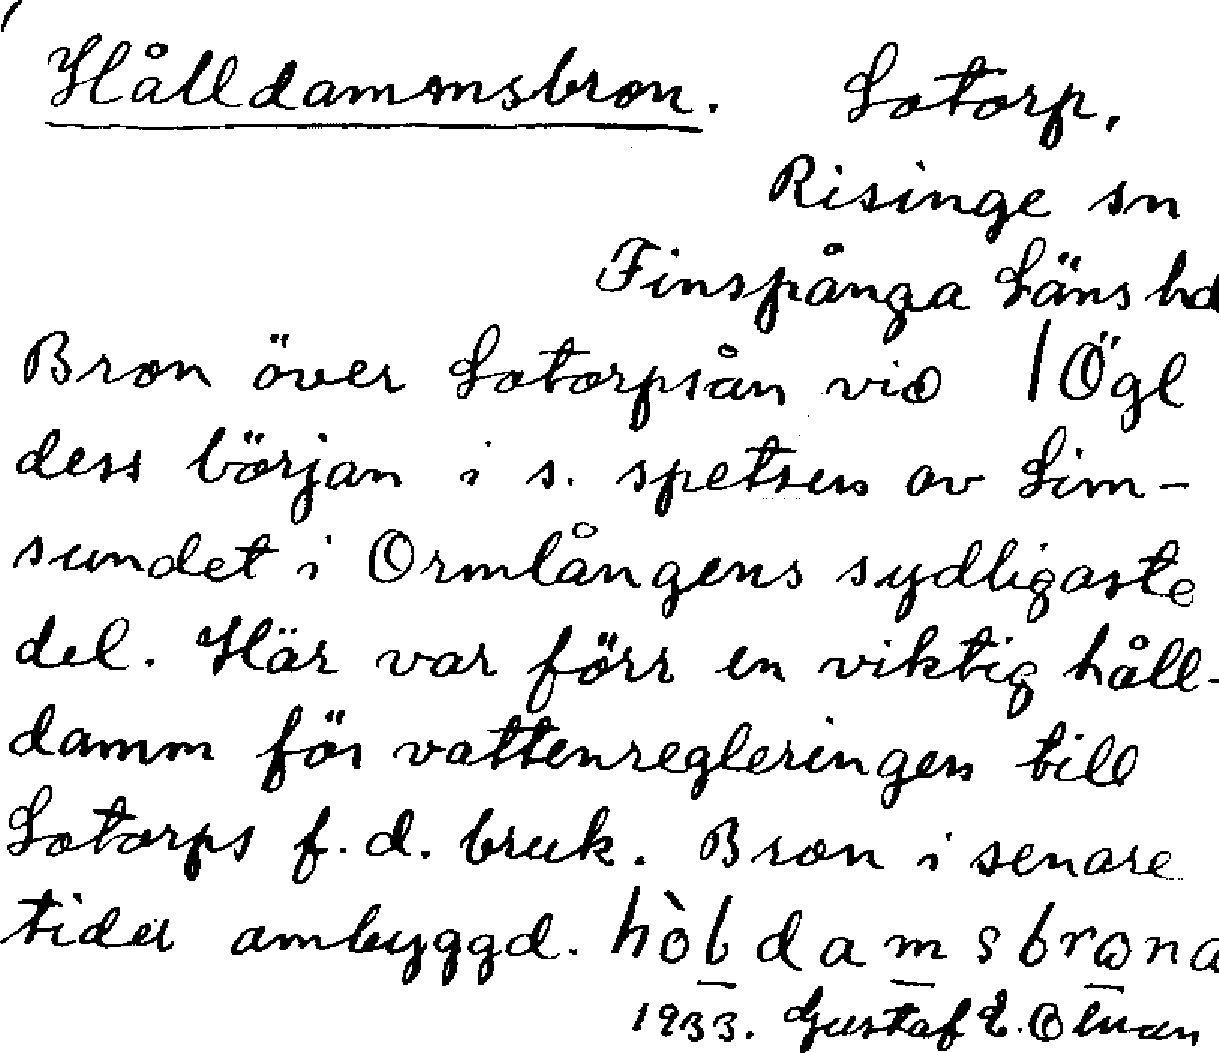 Hålldammsbron. Lotorp,
Risinge sn
Finspånga Läns hd
Bron över Lotorpsån vid | Ögl
dess början i s. spetsen av Lim-
sundet i Ormlångens sydligaste
del. Här var förr en viktig håll-
damm för vattenregleringen till
Lotorps f.d. bruk. Bron i senare
tider ombyggd.
1933. Gustaf E.